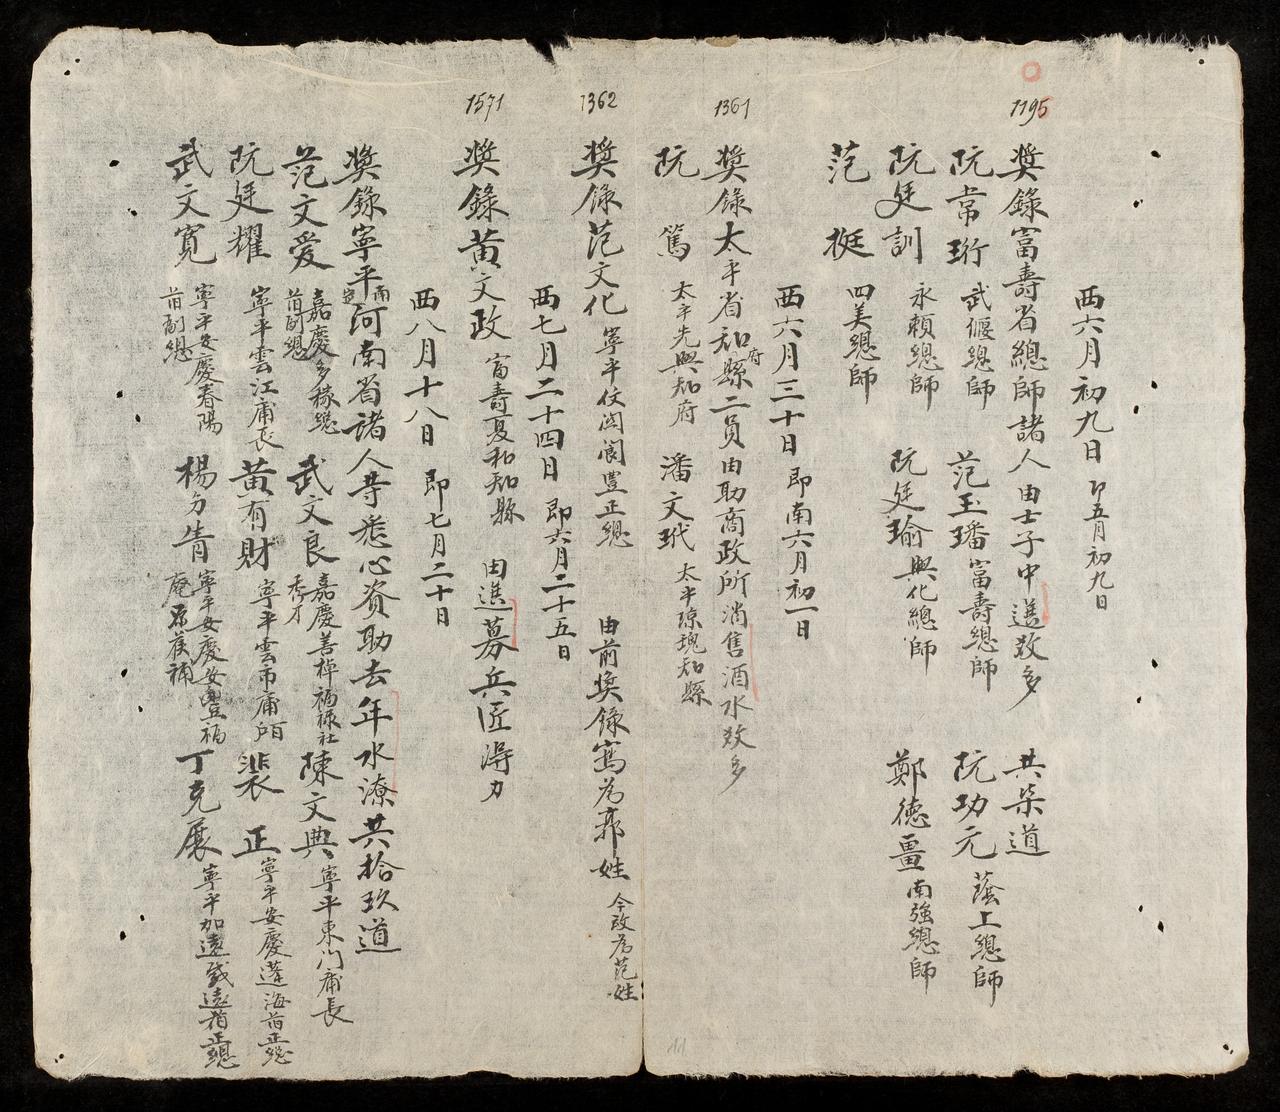 西六月初九日 即五月初九日
1195
奬錄富壽省總師諸人由士子中選數多 共柒道
阮常珩 武偃總師 范玉璠 富壽總師 阮功元 蔭上總師
阮廷訓 永賴總師 阮廷瑜 興化總師 鄭德畺 南強總師
范挺 四美總師
西六月三十日 即南六月初一日
1361
奬錄太平省知府縣二員由助商政所消售酒水數多
阮篤 太平先興知府 潘文玳 太平瓊瑰知縣
西七月二十四日 即六月二十五日
1362
奬錄范文化 寧平 豊正總 由前奬錄寫為郭姓 今改為范姓
1571
奬錄黃文政 富壽夏和知縣 由進募兵匠得力
西八月十八日 即七月二十日
奬錄寧平南定河南省諸人等悉心資助去年水潦共拾玖道
范文爱 嘉慶多稼總前副總 武文良 嘉慶善悼福祿社秀才 陳文典 寧平東門庯長
阮廷耀 寧平雲江庯長 黃有財 寧平雲市庯 裴正 寧平安慶蓮海前正總
武文寬 寧平安慶春陽前副總 楊 寧平安慶安豊福 丁克展 寧平加遠 前正總
11